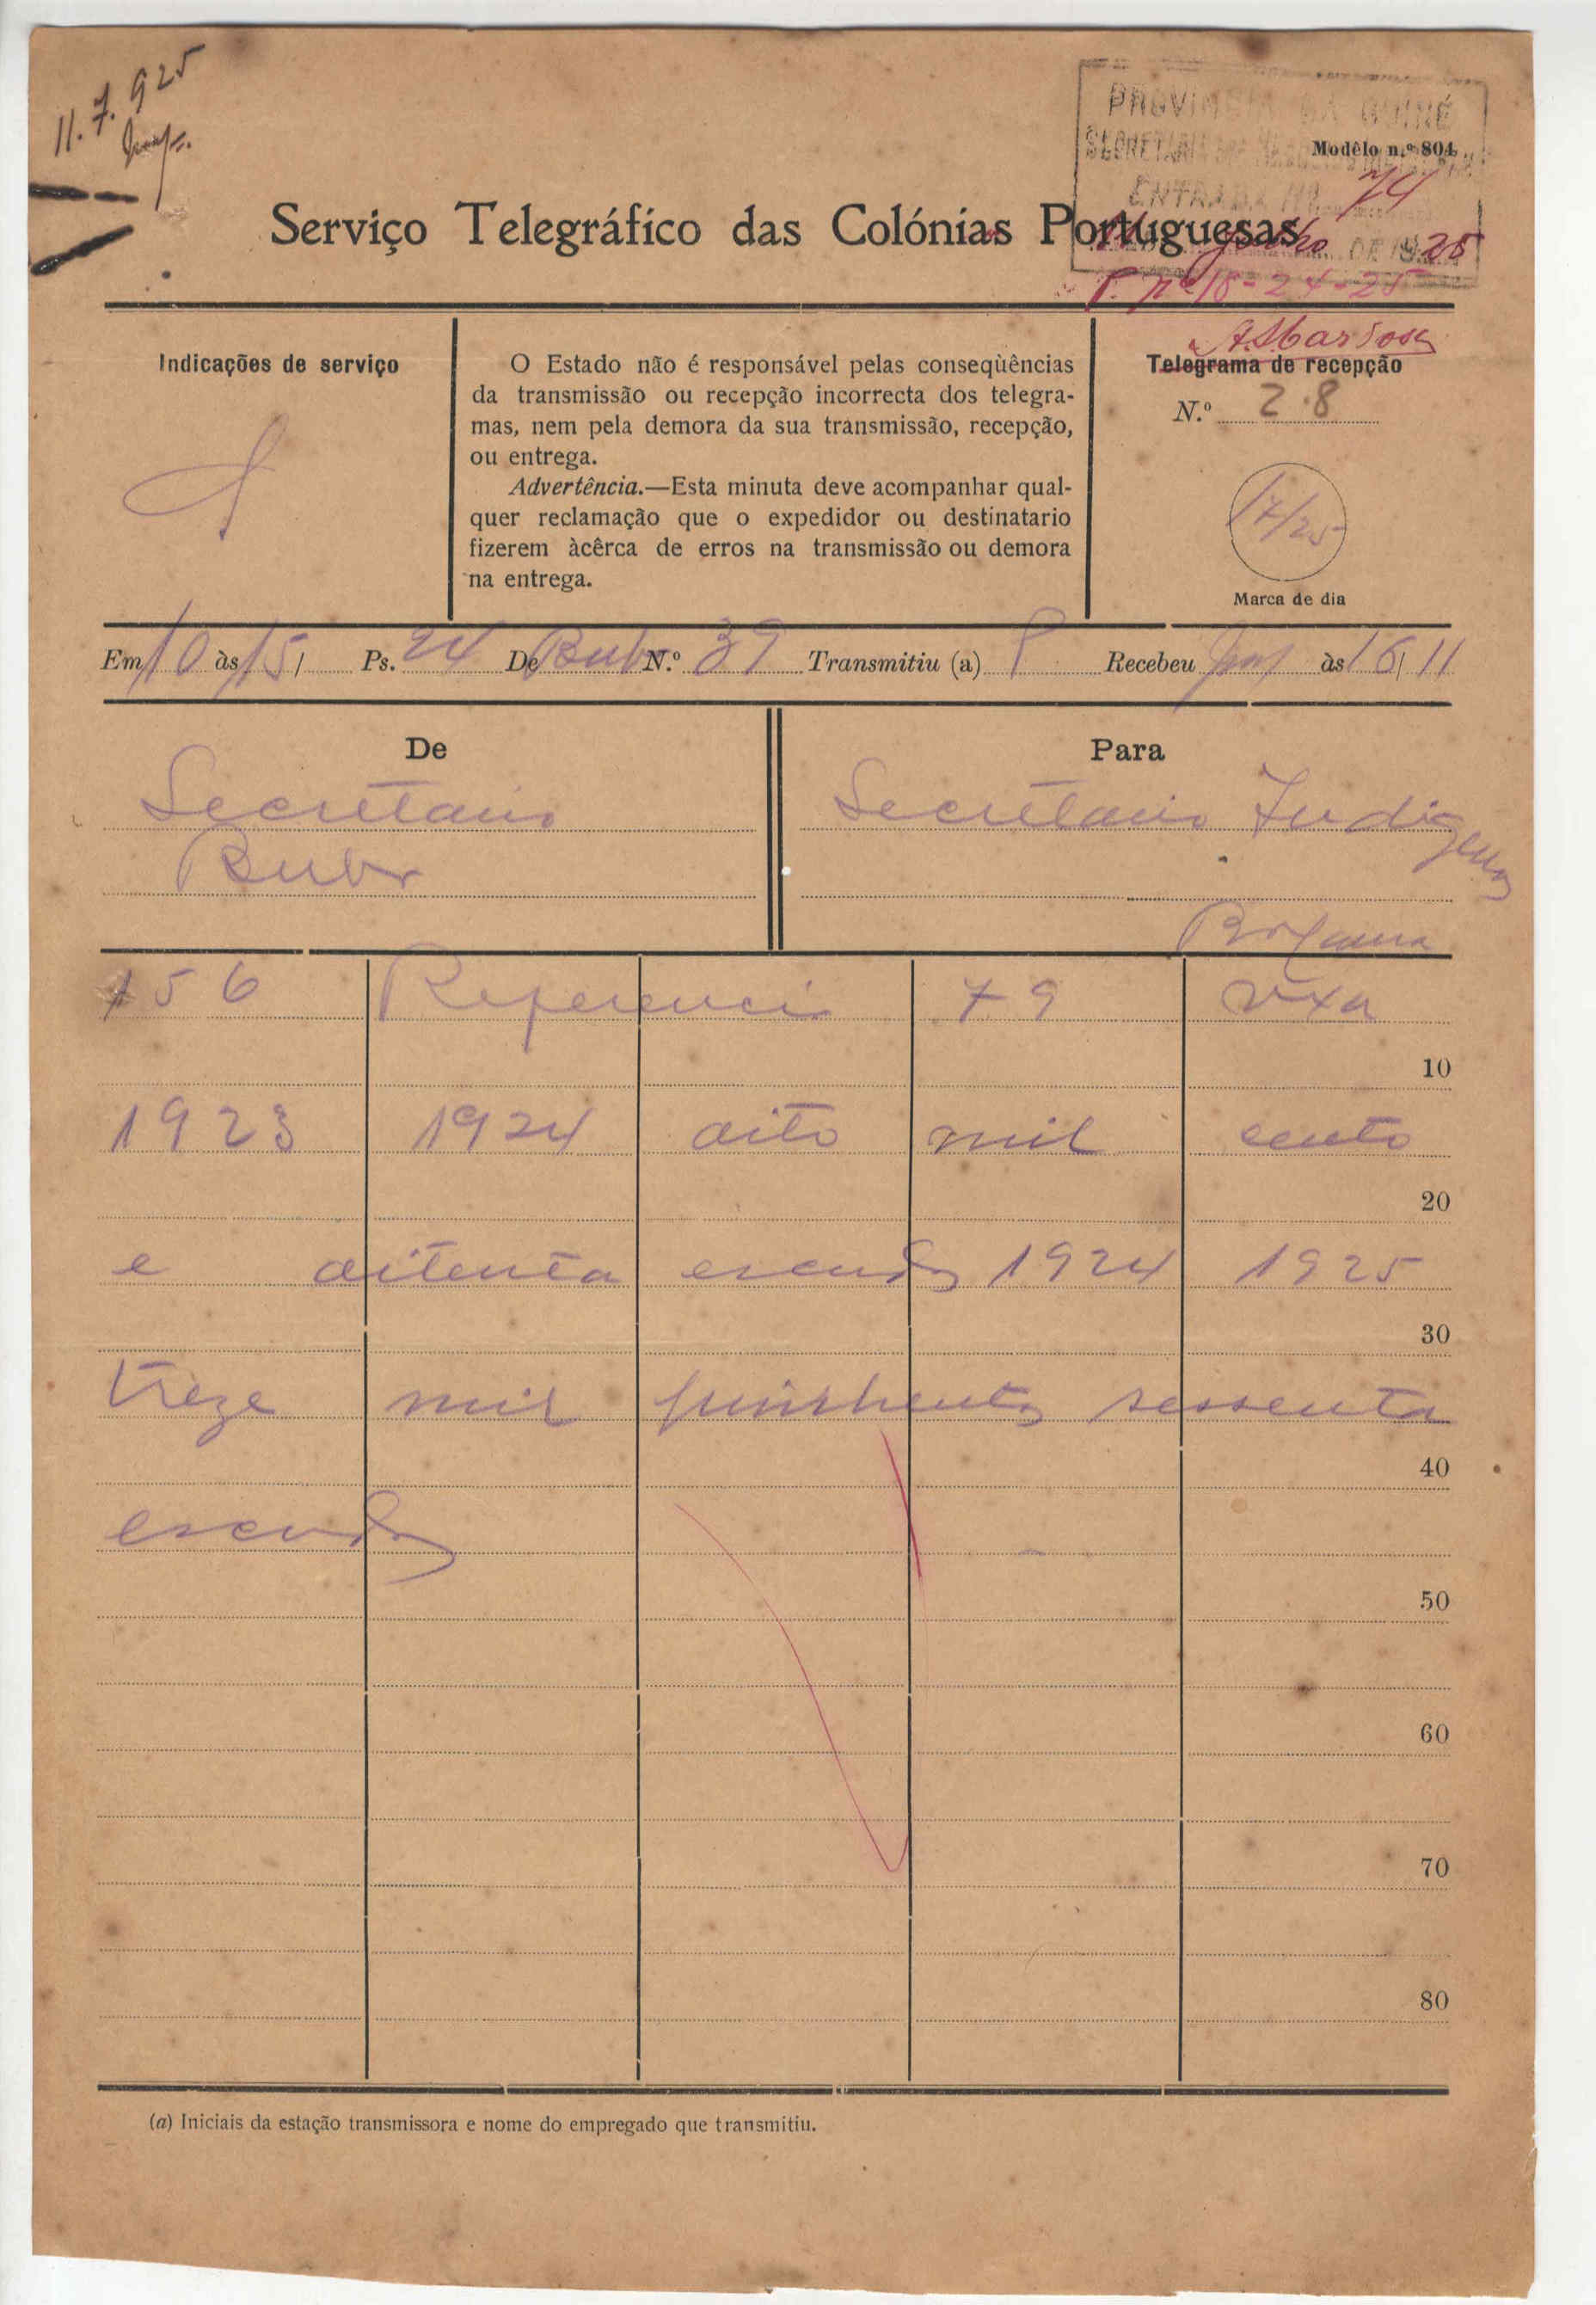 11. 7. 925
PROVINCIA DA GUINÉ
Modêlo n.º 804
ENTRADA Nº 74
Serviço Telegráfico das Colónias Portuguesas
Julho DE 1925
P. nº 18-24-25
Indicações de serviço
O Estado não é responsável pelas conseqüências
da transmissão ou recepção incorrecta dos telegra-
mas, nem pela demora da sua transmissão, recepção,
ou entrega.
Advertência.—Esta minuta deve acompanhar qual-
quer reclamação que o expedidor ou destinatario
fizerem àcêrca de erros na transmissão ou demora
na entrega.
A. Barbosa
Telegrama de recepção
N.º 28
/7/25
Marca de dia
Em 10 às 15/ Ps. 24 De Buba N.º 39 Transmitiu (a) Recebeu às 16/11
De
Secretario
Buba
Para
Secretario Indigenas
Bolama
156 Referencia 79 vxa
10
1923 1924 oito mil cento
20
e oitenta escudos 1924 1925
30
treze mil quinhentos sessenta
40
escudos
50
60
70
80
(a) Iniciais da estação transmissora e nome do empregado que transmitiu.